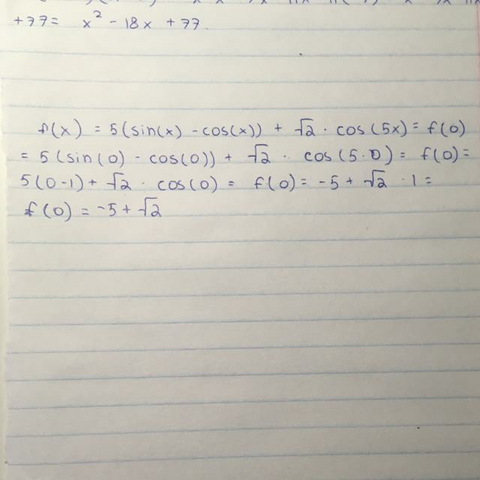 +77= x² - 18x + 77.
f(x) = 5(sin(x) - cos(x)) + √2 · cos(5x) = f(0)
= 5(sin(0) - cos(0)) + √2 · cos(5·0) = f(0) =
5(0-1) + √2 · cos(0) = f(0) = -5 + √2 · 1 =
f(0) = -5 + √2